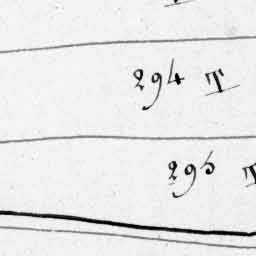 294 T
295 T